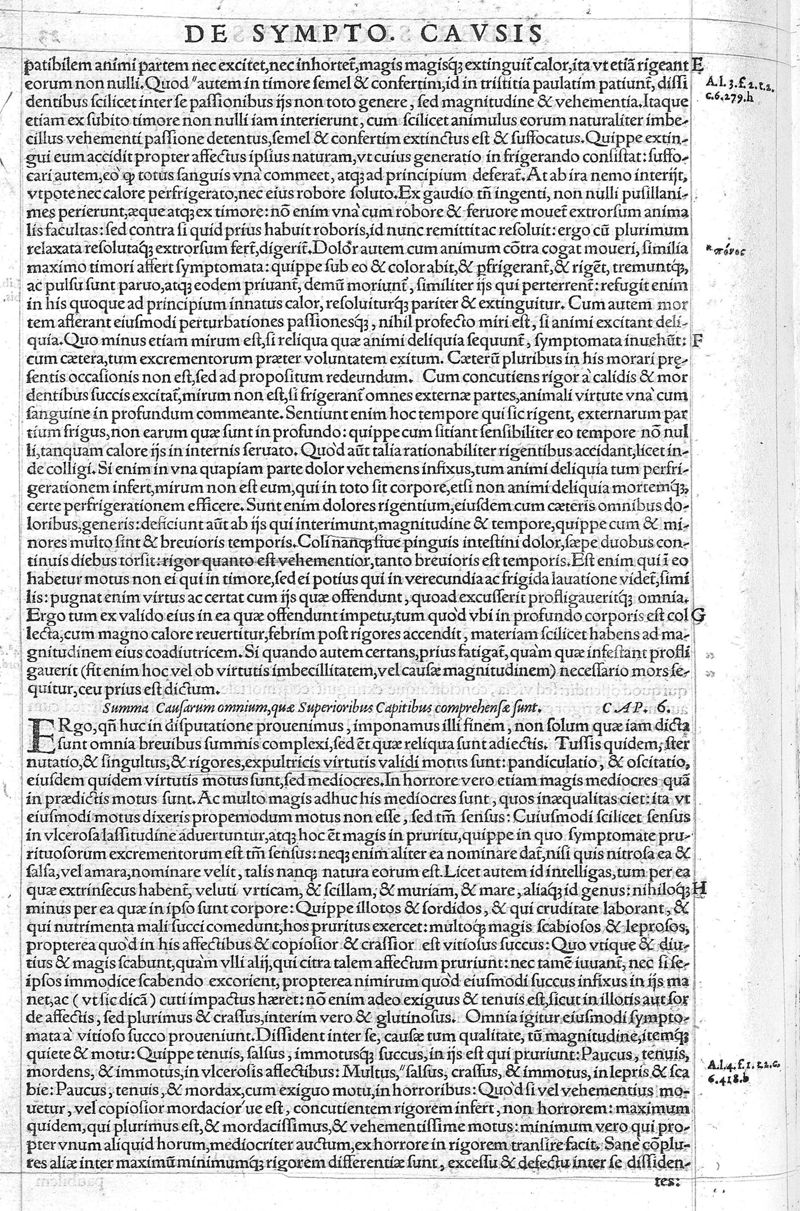 DE SYMPTO. CAVSIS
patibilem animi partem nec excitet, nec inhortet̃, magis magisq́ꝫ extinguit̃ calor, ita vt etiã rigeant E
eorum non nulli. Quod "autem in timore semel & confertim, id in tristitia paulatim patiunt̃, dissi A.l.3.f.2.t.2.
dentibus scilicet inter se passionibus ijs non toto genere, sed magnitudine & vehementia. Itaque c.6.279.h
etiam ex subito timore non nulli iam interierunt, cum scilicet animulus eorum naturaliter imbe-
cillus vehementi passione detentus, semel & confertim extinctus est & suffocatus. Quippe extin-
gui eum accidit propter affectus ipsius naturam, vt cuius generatio in frigerando consistat: suffo-
cari autem, eò ꝙ totus sanguis vnà commeet, atqꝫ ad principium deferat̃. At ab ira nemo interijt,
vtpote nec calore perfrigerato, nec eius robore soluto. Ex gaudio tm̃ ingenti, non nulli pusillani-
mes perierunt, æque atqꝫ ex timore: nõ enim vnà cum robore & feruore mouet̃ extrorsum anima
lis facultas: sed contra si quid prius habuit roboris, id nunc remittit ac resoluit: ergo cũ plurimum
relaxata resolutaq́ꝫ extrorsum fert̃, digerit̃. Dolor autem cum animum cõtra cogat moueri, similia *πόνος
maximo timori affert symptomata: quippe sub eo & color abit, & ꝑfrigerant̃, & rigẽt, tremuntq́ꝫ,
ac pulsu sunt paruo, atqꝫ eodem priuant̃, demũ moriunt̃, similiter ijs qui perterrent̃: refugit enim
in his quoque ad principium innatus calor, resoluiturq́ꝫ pariter & extinguitur. Cum autem mor
tem afferant eiusmodi perturbationes passionesq́ꝫ, nihil profecto miri est, si animi excitant deli-
quia. Quo minus etiam mirum est, si reliqua quæ animi deliquia sequunt̃, symptomata inuehũt: F
cum cætera, tum excrementorum præter voluntatem exitum. Cæterũ pluribus in his morari præ-
sentis occasionis non est, sed ad propositum redeundum. Cum concutiens rigor à calidis & mor
dentibus succis excitat̃, mirum non est, si frigerant̃ omnes externæ partes, animali virtute vnà cum
sanguine in profundum commeante. Sentiunt enim hoc tempore qui sic rigent, externarum par
tium frigus, non earum quæ sunt in profundo: quippe cum sitiant sensibiliter eo tempore nõ nul
li, tanquam calore ijs in internis seruato. Quòd aũt talia rationabiliter rigentibus accidant, licet in-
de colligi. Si enim in vna quapiam parte dolor vehemens infixus, tum animi deliquia tum perfri-
gerationem infert, mirum non est eum, qui in toto sit corpore, etsi non animi deliquia mortemq́ꝫ,
certe perfrigerationem efficere. Sunt enim dolores rigentium, eiusdem cum cæteris omnibus do-
loribus, generis: deficiunt aũt ab ijs qui interimunt, magnitudine & tempore, quippe cum & mi-
nores multo sint & breuioris temporis. Coli nanqꝫ siue pinguis intestini dolor, sæpe duobus con-
tinuis diebus torsit: rigor quanto est vehementior, tanto breuioris est temporis. Est enim qui ĩ eo
habetur motus non ei qui in timore, sed ei potius qui in verecundia ac frigida lauatione videt̃, simi
lis: pugnat enim virtus ac certat cum ijs quæ offendunt, quoad excusserit profligaueritq́ꝫ omnia.
Ergo tum ex valido eius in ea quæ offendunt impetu, tum quòd vbi in profundo corporis est col G
lecta, cum magno calore reuertitur, febrim post rigores accendit, materiam scilicet habens ad ma-
gnitudinem eius coadiutricem. Si quando autem certans, prius fatigat̃, quàm quæ infestant profli
gauerit (fit enim hoc vel ob virtutis imbecillitatem, vel causæ magnitudinem) necessario mors se-
quitur, ceu prius est dictum.
Summa Causarum omnium, quæ Superioribus Capitibus comprehensæ sunt. CAP. 6.
ERgo, qñ huc in disputatione prouenimus, imponamus illi finem, non solum quæ iam dicta
sunt omnia breuibus summis complexi, sed ẽt quæ reliqua sunt adiectis. Tussis quidem, ster
nutatio, & singultus, & rigores, expultricis virtutis validi motus sunt: pandiculatio, & oscitatio,
eiusdem quidem virtutis motus sunt, sed mediocres. In horrore vero etiam magis mediocres quã
in prædictis motus sunt. Ac multo magis adhuc his mediocres sunt, quos inæqualitas ciet: ita vt
eiusmodi motus dixeris propemodum motus non esse, sed tm̃ sensus: Cuiusmodi scilicet sensus
in vlcerosa lassitudine aduertuntur, atqꝫ hoc ẽt magis in pruritu, quippe in quo symptomate pru-
rituosorum excrementorum est tm̃ sensus: neqꝫ enim aliter ea nominare dat̃, nisi quis nitrosa ea &
salsa, vel amara, nominare velit, talis nanqꝫ natura eorum est. Licet autem id intelligas, tum per ea
quæ extrinsecus habent̃, veluti vrticam, & scillam, & muriam, & mare, aliaq́ꝫ id genus: nihiloq́ꝫ H
minus per ea quæ in ipso sunt corpore: Quippe illotos & sordidos, & qui cruditate laborant, &
qui nutrimenta mali succi comedunt, hos pruritus exercet: multoq́ꝫ magis scabiosos & leprosos,
propterea quòd in his affectibus & copiosior & crassior est vitiosus succus: Quo vtique & diu-
tius & magis scabunt, quàm vlli alij, qui citra talem affectum pruriunt: nec tamẽ iuuant̃, nec si se-
ipsos immodice scabendo excorient, propterea nimirum quòd eiusmodi succus infixus in ijs ma
net, ac (vt sic dicã) cuti impactus hæret: nõ enim adeo exiguus & tenuis est, sicut in illotis aut sor
de affectis, sed plurimus & crassus, interim vero & glutinosus. Omnia igitur eiusmodi sympto-
mata à vitioso succo proueniunt. Dissident inter se, causæ tum qualitate, tũ magnitudine, itemq́ꝫ
quiete & motu: Quippe tenuis, salsus, immotusq́ꝫ succus, in ijs est qui pruriunt: Paucus, tenuis,
mordens, & immotus, in vlcerosis affectibus: Multus, "salsus, crassus, & immotus, in lepris & sca A.l.4.f.1.t.2.c.
bie: Paucus, tenuis, & mordax, cum exiguo motu, in horroribus: Quòd si vel vehementius mo- 6.418.b
uetur, vel copiosior mordacior've est, concutientem rigorem infert, non horrorem: maximum
quidem, qui plurimus est, & mordacissimus, & vehementissime motus: minimum vero qui pro-
pter vnum aliquid horum, mediocriter auctum, ex horrore in rigorem transire facit. Sane cõplu-
res aliæ inter maximũ minimumq́ꝫ rigorem differentiæ sunt, excessu & defectu inter se dissiden-
tes: